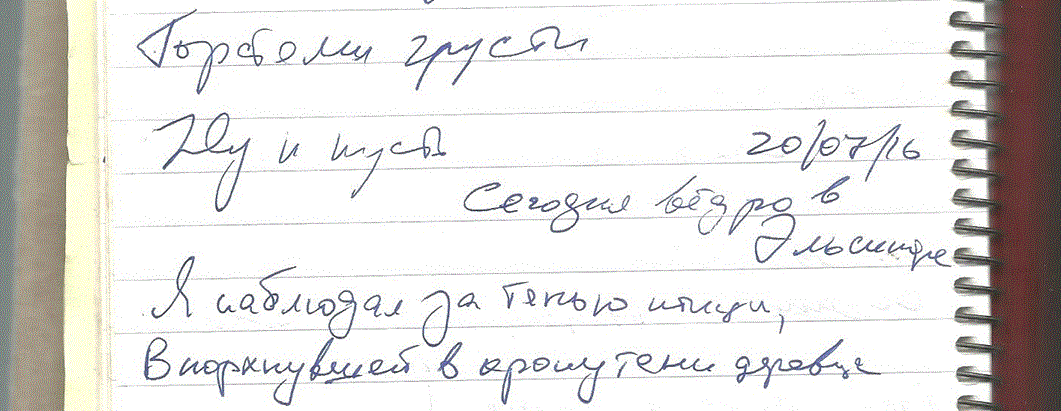 Горстями грусти
Ну и пусть 20/07/16
Сегодня вёдро в
Эльсиноре
Я наблюдал за тенью птицы,
Впорхнувшей в крону тени деревца